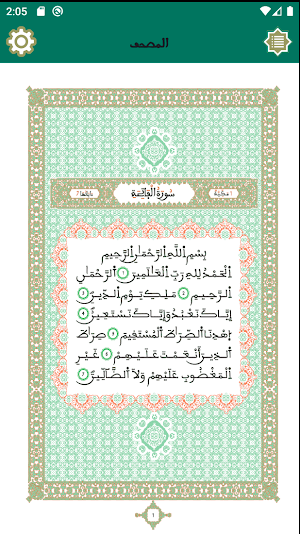 2:05
المصحف
سُورَةُ الْفَاتِحَةِ
بِسْمِ اِللَّهِ اِلرَّحْمَٰنِ اِلرَّحِيمِ
اِلْحَمْدُ لِلهِ رَبِّ اِلْعَٰلَمِينَ 1 اَلرَّحْمَٰنِ
اِلرَّحِيمِ 2 مَلِكِ يَوْمِ اِلدِّينِ 3
إِيَّاكَ نَعْبُدُ وَإِيَّاكَ نَسْتَعِينُ 4
اِهْدِنَا اَلصِّرَٰطَ اَلْمُسْتَقِيمَ 5 صِرَٰطَ
اَلذِينَ أَنْعَمْتَ عَلَيْهِمْ 6 غَيْرِ
اِلْمَغْضُوبِ عَلَيْهِمْ وَلَا اَلضَّآلِّينَ 7
1